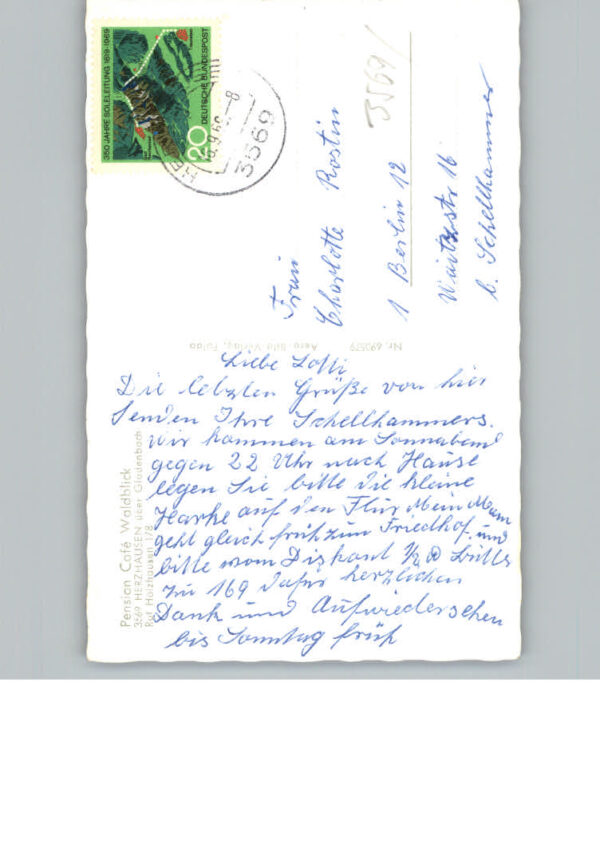 350 JAHRE SOLELEITUNG 1619-1969
DEUTSCHE BUNDESPOST
20
3569
3569/
Frau
Charlotte Rostin
1 Berlin 12
Waitzstr 16
b. Schellhammer
Nr. 690579 Aero Bild Verlag, Fulda
Pension Café Waldblick
3569 HERZHAUSEN über Gladenbach
Ruf Holzhausen 178
Liebe Lotti
Die letzten Grüße von hier
senden Ihre Schellhammers.
Wir kommen am Sonnabend
gegen 22 Uhr nach Hause
legen Sie bitte die kleine
Harke auf den Flur Mein Mann
geht gleich früh zum Friedhof. und
bitte vom Diskont 1/2 ℔ Butter
zu 169 dafür herzlichen
Dank und Aufwiedersehen
bis Sonntag früh